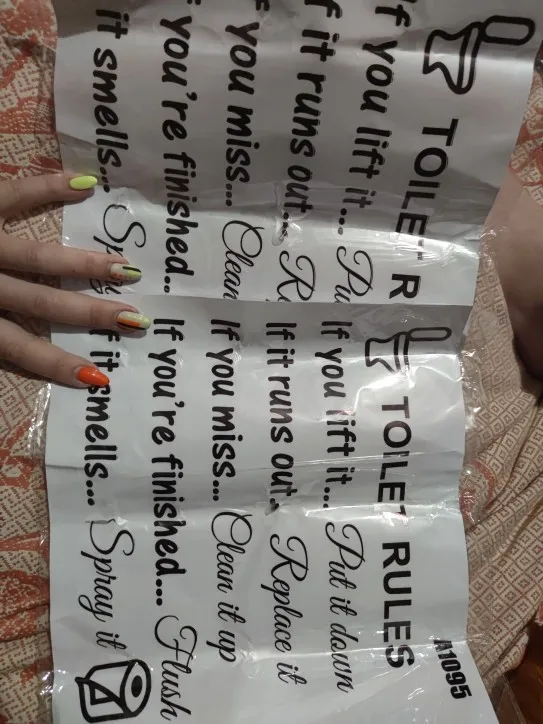 TOILET R
If you lift it... Pu
If it runs out... R
If you miss... Clean
If you're finished...
it smells... Spray
A1095
TOILET RULES
If you lift it... Put it down
If it runs out... Replace it
If you miss... Clean it up
If you're finished... Flush
If it smells... Spray it